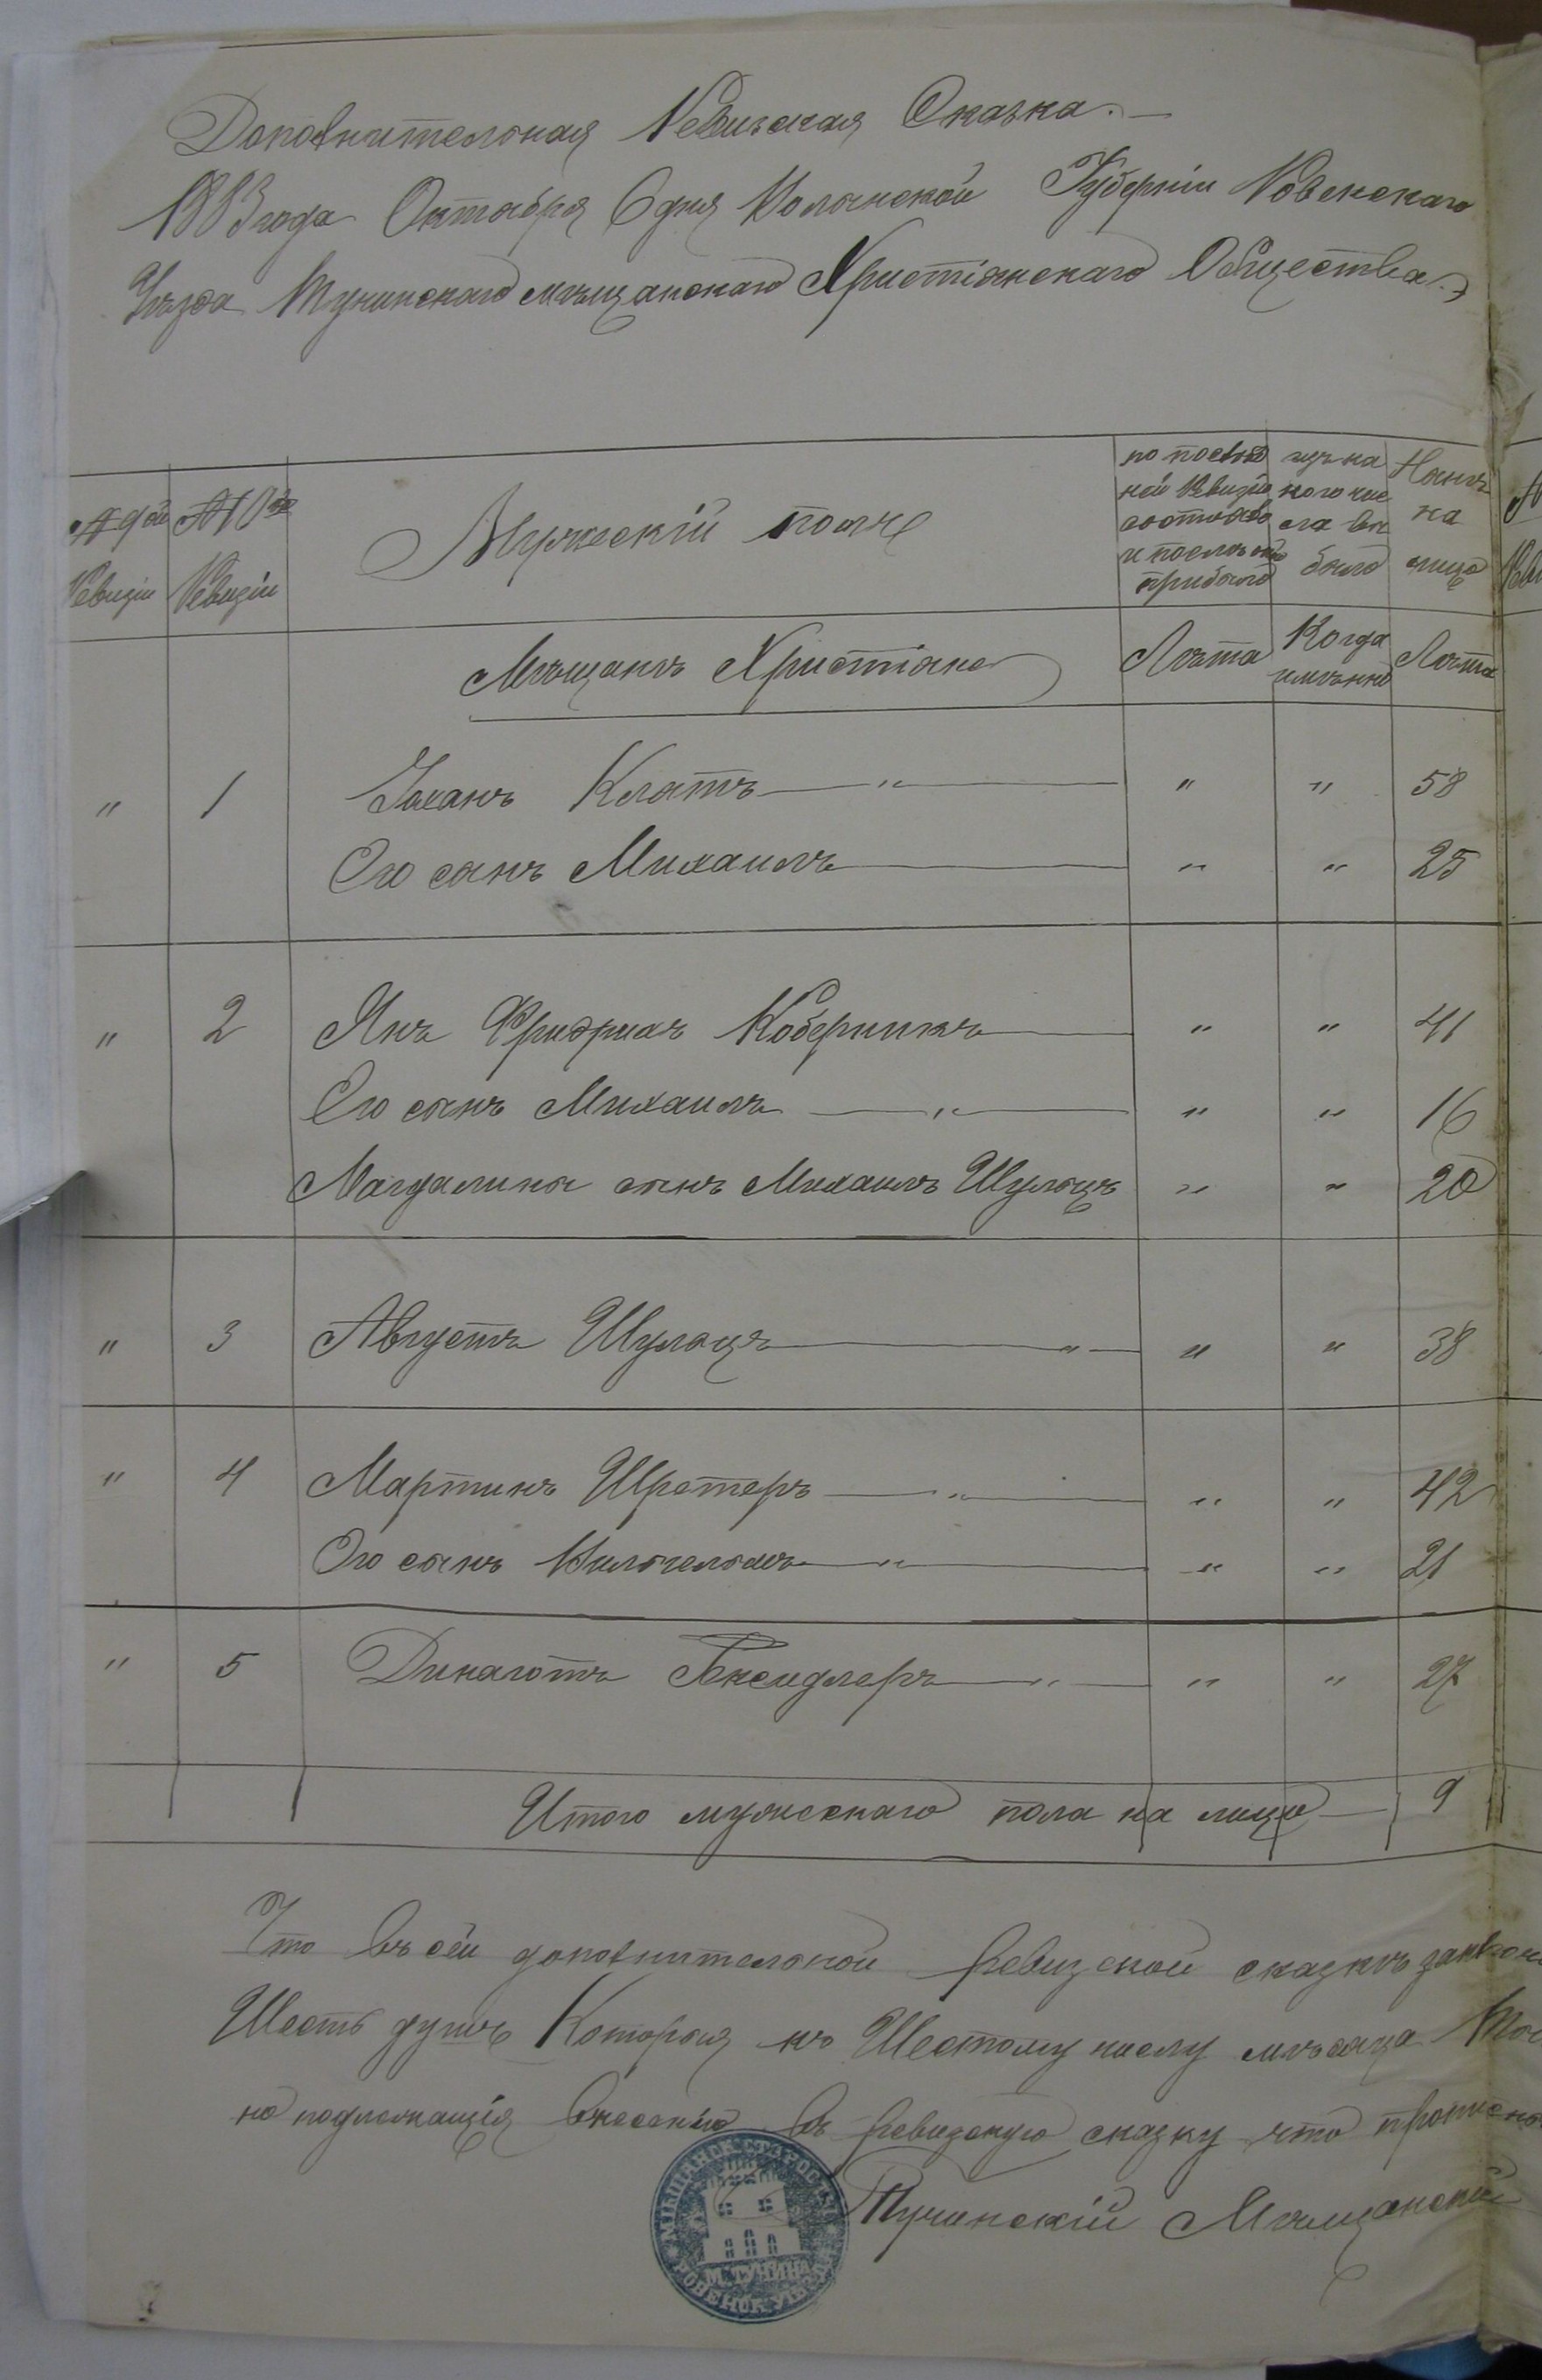 Дополнительная Ревизская Сказка.
1883 года Октября 6 дня Волынской Губерніи Ровенскаго
Уѣзда Тучинскаго мѣщанскаго Христіянскаго Общества.
№ 9ой Ревизіи
№ 10ой Ревизіи
Мужескій полъ
по послѣд
ней Ревизіи
состояло
и послѣ
прибыло
изъ на
ного чис
ла вы
было
Нынѣ
на
лицо
Мѣщанъ Христіянъ
Лѣта Когда имѣнно Лѣта
" 1 Іоганъ Клатъ " " " 58
Его сынъ Михаилъ " " 25
" 2 Янъ Фридрихъ Коберникъ " " 41
Его сынъ Михаилъ " " " 16
Магдалины сынъ Михаилъ Шульцъ " " 20
" 3 Августъ Шульцъ " " " 38
" 4 Мартинъ Шретеръ " " " 42
Его сынъ Вильгельмъ " " " 21
" 5 " " " 27
Итого мужескаго пола на лицо 9
Что въ сей дополнительной ревизской сказкѣ
Шесть душъ Которыя къ Шестому числу мѣсяца
но подлежащія внесенію въ ревизскую сказку что
Тучинскій Мѣщанскій
МѢЩАНСК СТАРОСТЫ
М. ТУЧИНА
РОВЕНСК УѢЗДА